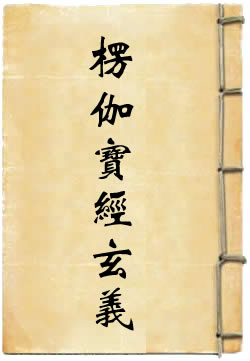 楞伽寶經玄義